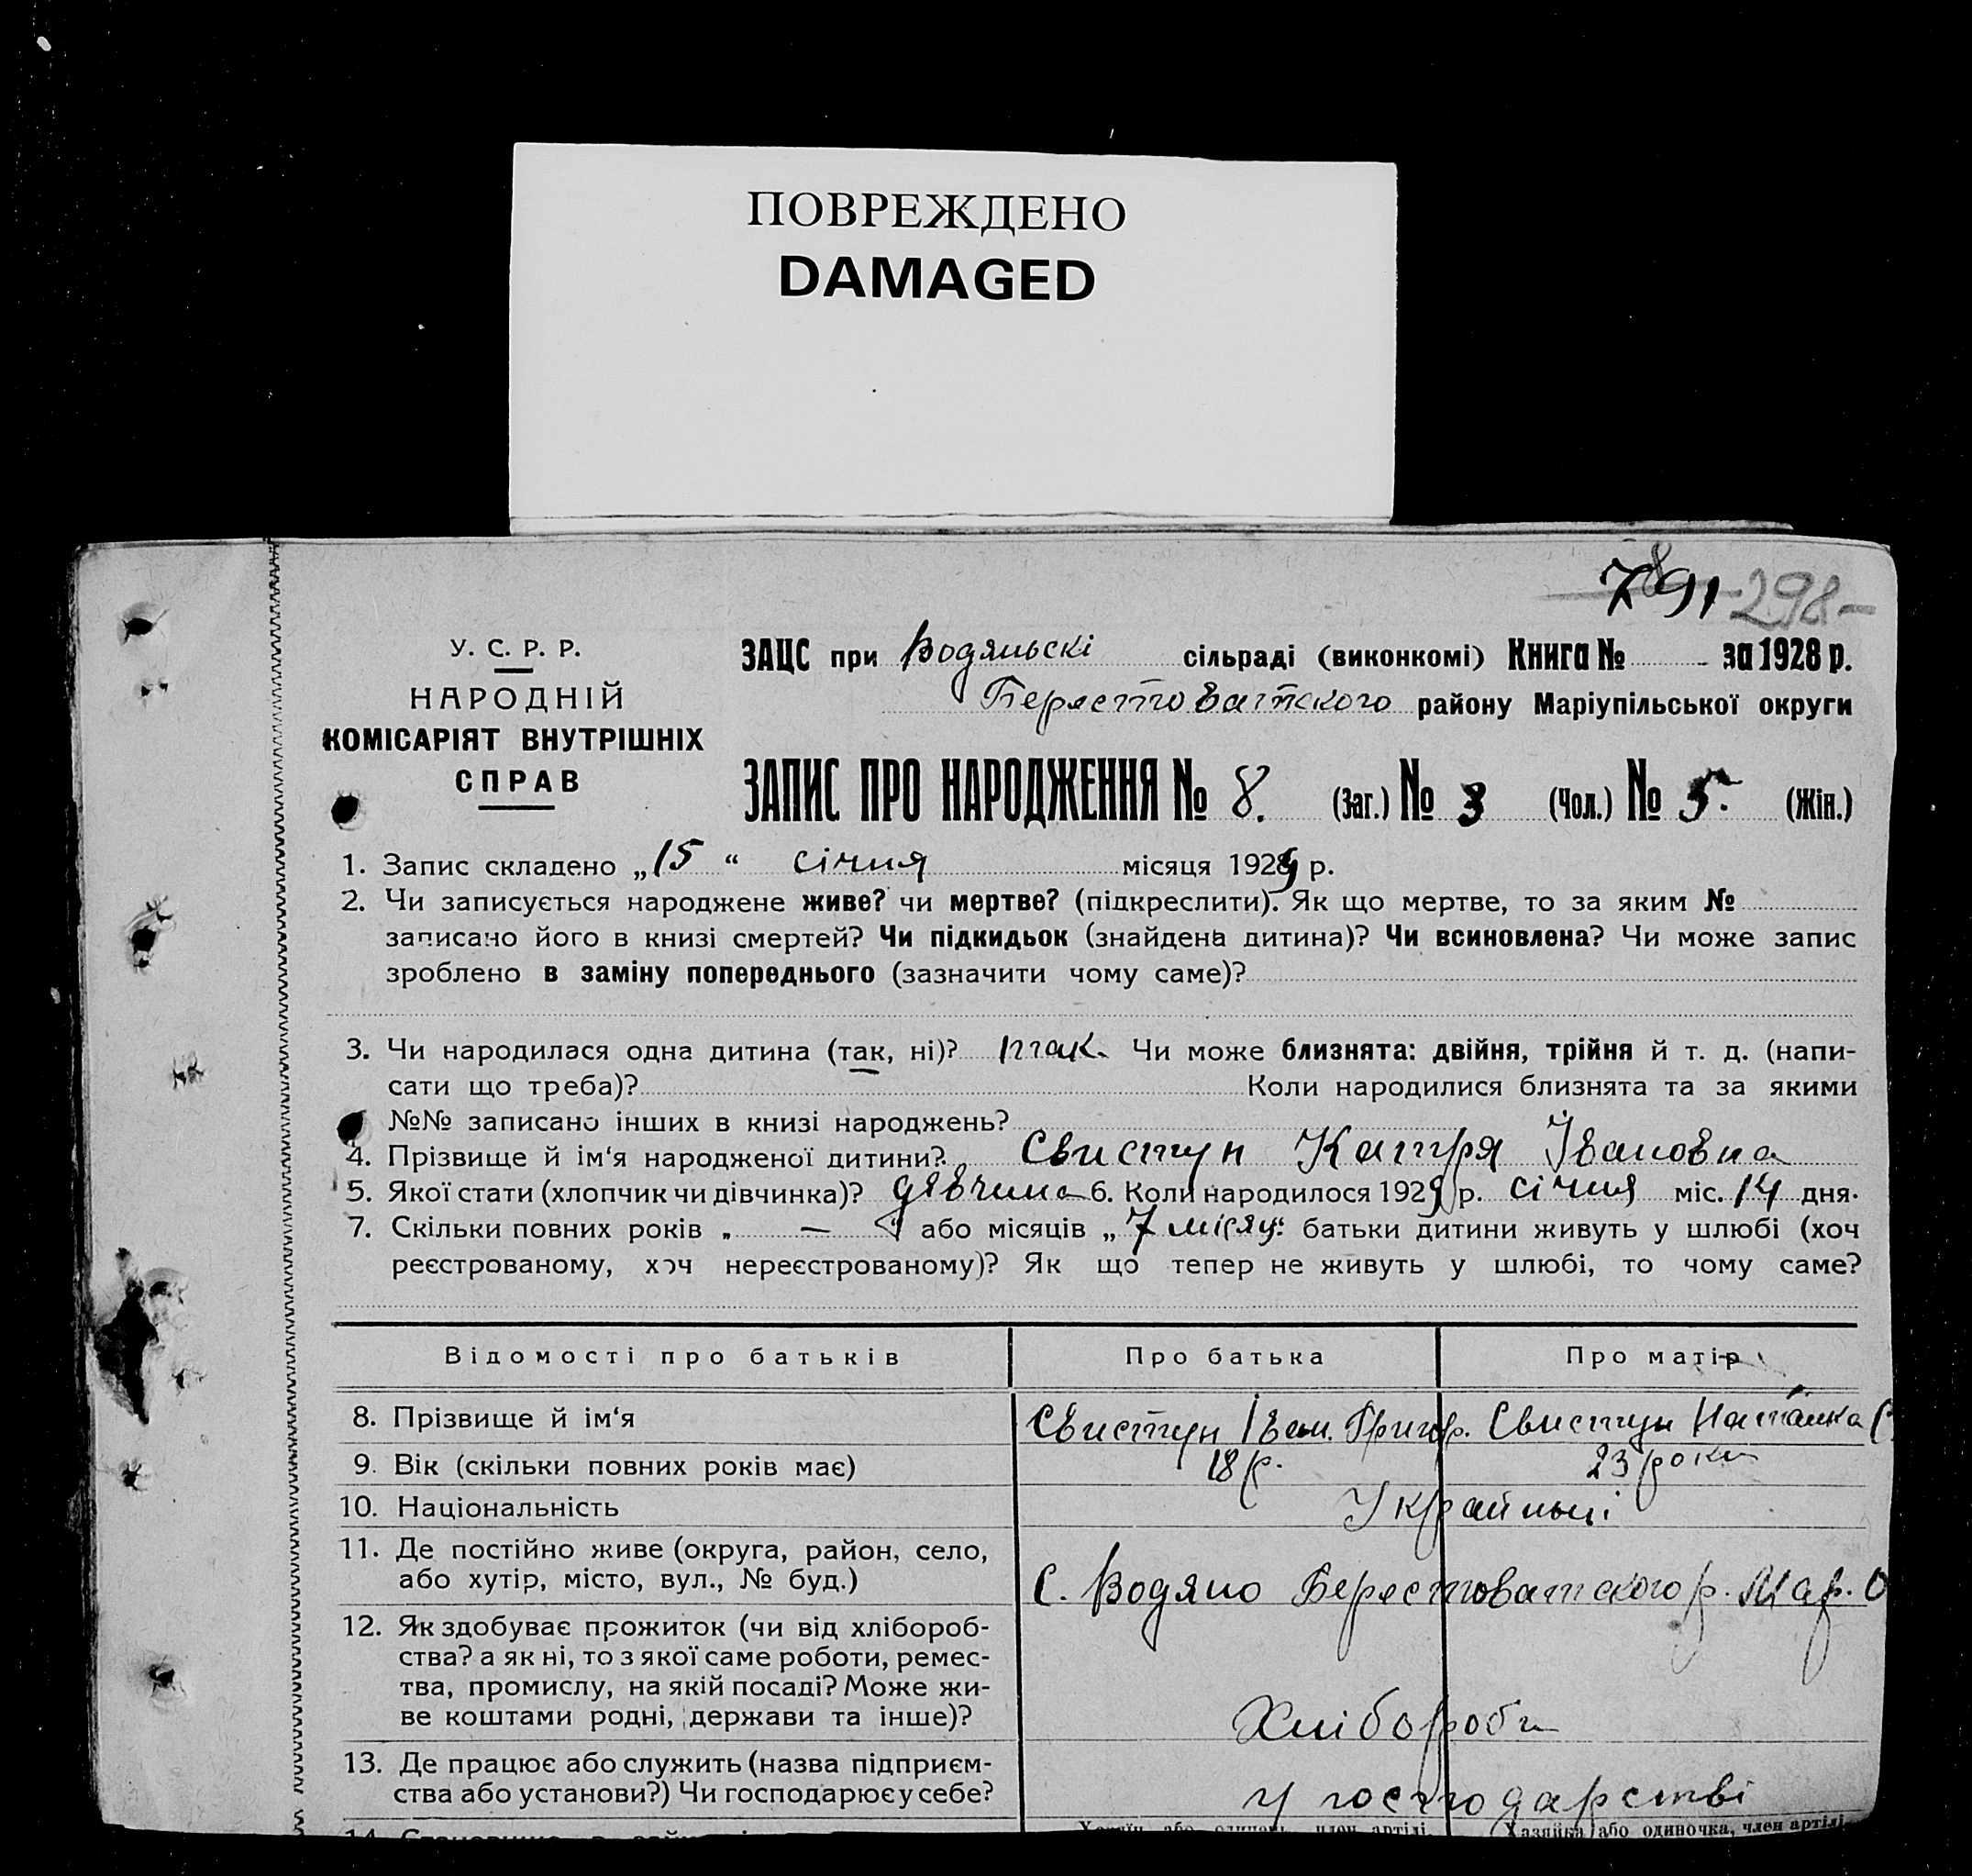 ПОВРЕЖДЕНО
DAMAGED
298-
У. С. Р. Р.
НАРОДНІЙ
КОМІСАРІЯТ ВНУТРІШНІХ
СПРАВ
ЗАЦС при Водяньскі сільраді (виконкомі) Книга № за 1928 р.
Берестоватского району Маріупільської округи
ЗАПИС ПРО НАРОДЖЕННЯ № 8. (Заг.) № 3 (Чол.) № 5. (Жін.)
1. Запис складено „15“ січня місяця 1929 р.
2. Чи записується народжене живе? чи мертве? (підкреслити). Як що мертве, то за яким №
записано його в книзі смертей? Чи підкидьок (знайдена дитина)? Чи всиновлена? Чи може запис
зроблено в заміну попереднього (зазначити чому саме)?
3. Чи народилася одна дитина (так, ні)? так. Чи може близнята: двійня, трійня й т. д. (напи-
сати що треба)? Коли народилися близнята та за якими
№№ записано інших в книзі народжень?
4. Прізвище й ім‘я народженої дитини? Свистун Катря Івановна
5. Якої стати (хлопчик чи дівчинка)? дівчина 6. Коли народилося 1929 р. січня міс. 14 дня.
7. Скільки повних років „ — “ або місяців „7 місяц.“ батьки дитини живуть у шлюбі (хоч
реєстрованому, хоч нереєстрованому)? Як що тепер не живуть у шлюбі, то чому саме?
Відомості про батьків Про батька Про матір
8. Прізвище й ім‘я Свистун Іван. Григор. Свистун Наталка С
9. Вік (скільки повних років має) 18 р. 23 роки
10. Національність Українці
11. Де постійно живе (округа, район, село,
або хутір, місто, вул., № буд.) С. Водяно Берестоватского р. Мар. О
12. Як здобуває прожиток (чи від хлібороб-
ства? а як ні, то з якої саме роботи, ремес-
тва, промислу, на якій посаді? Може жи-
ве коштами родні, держави та інше)? Хлібороби
13. Де працює або служить (назва підприєм-
ства або установи?) Чи господарює у себе? у господарстві
Хазяїн або одинець, член артілі, Хазяйка або одиночка, член артілі